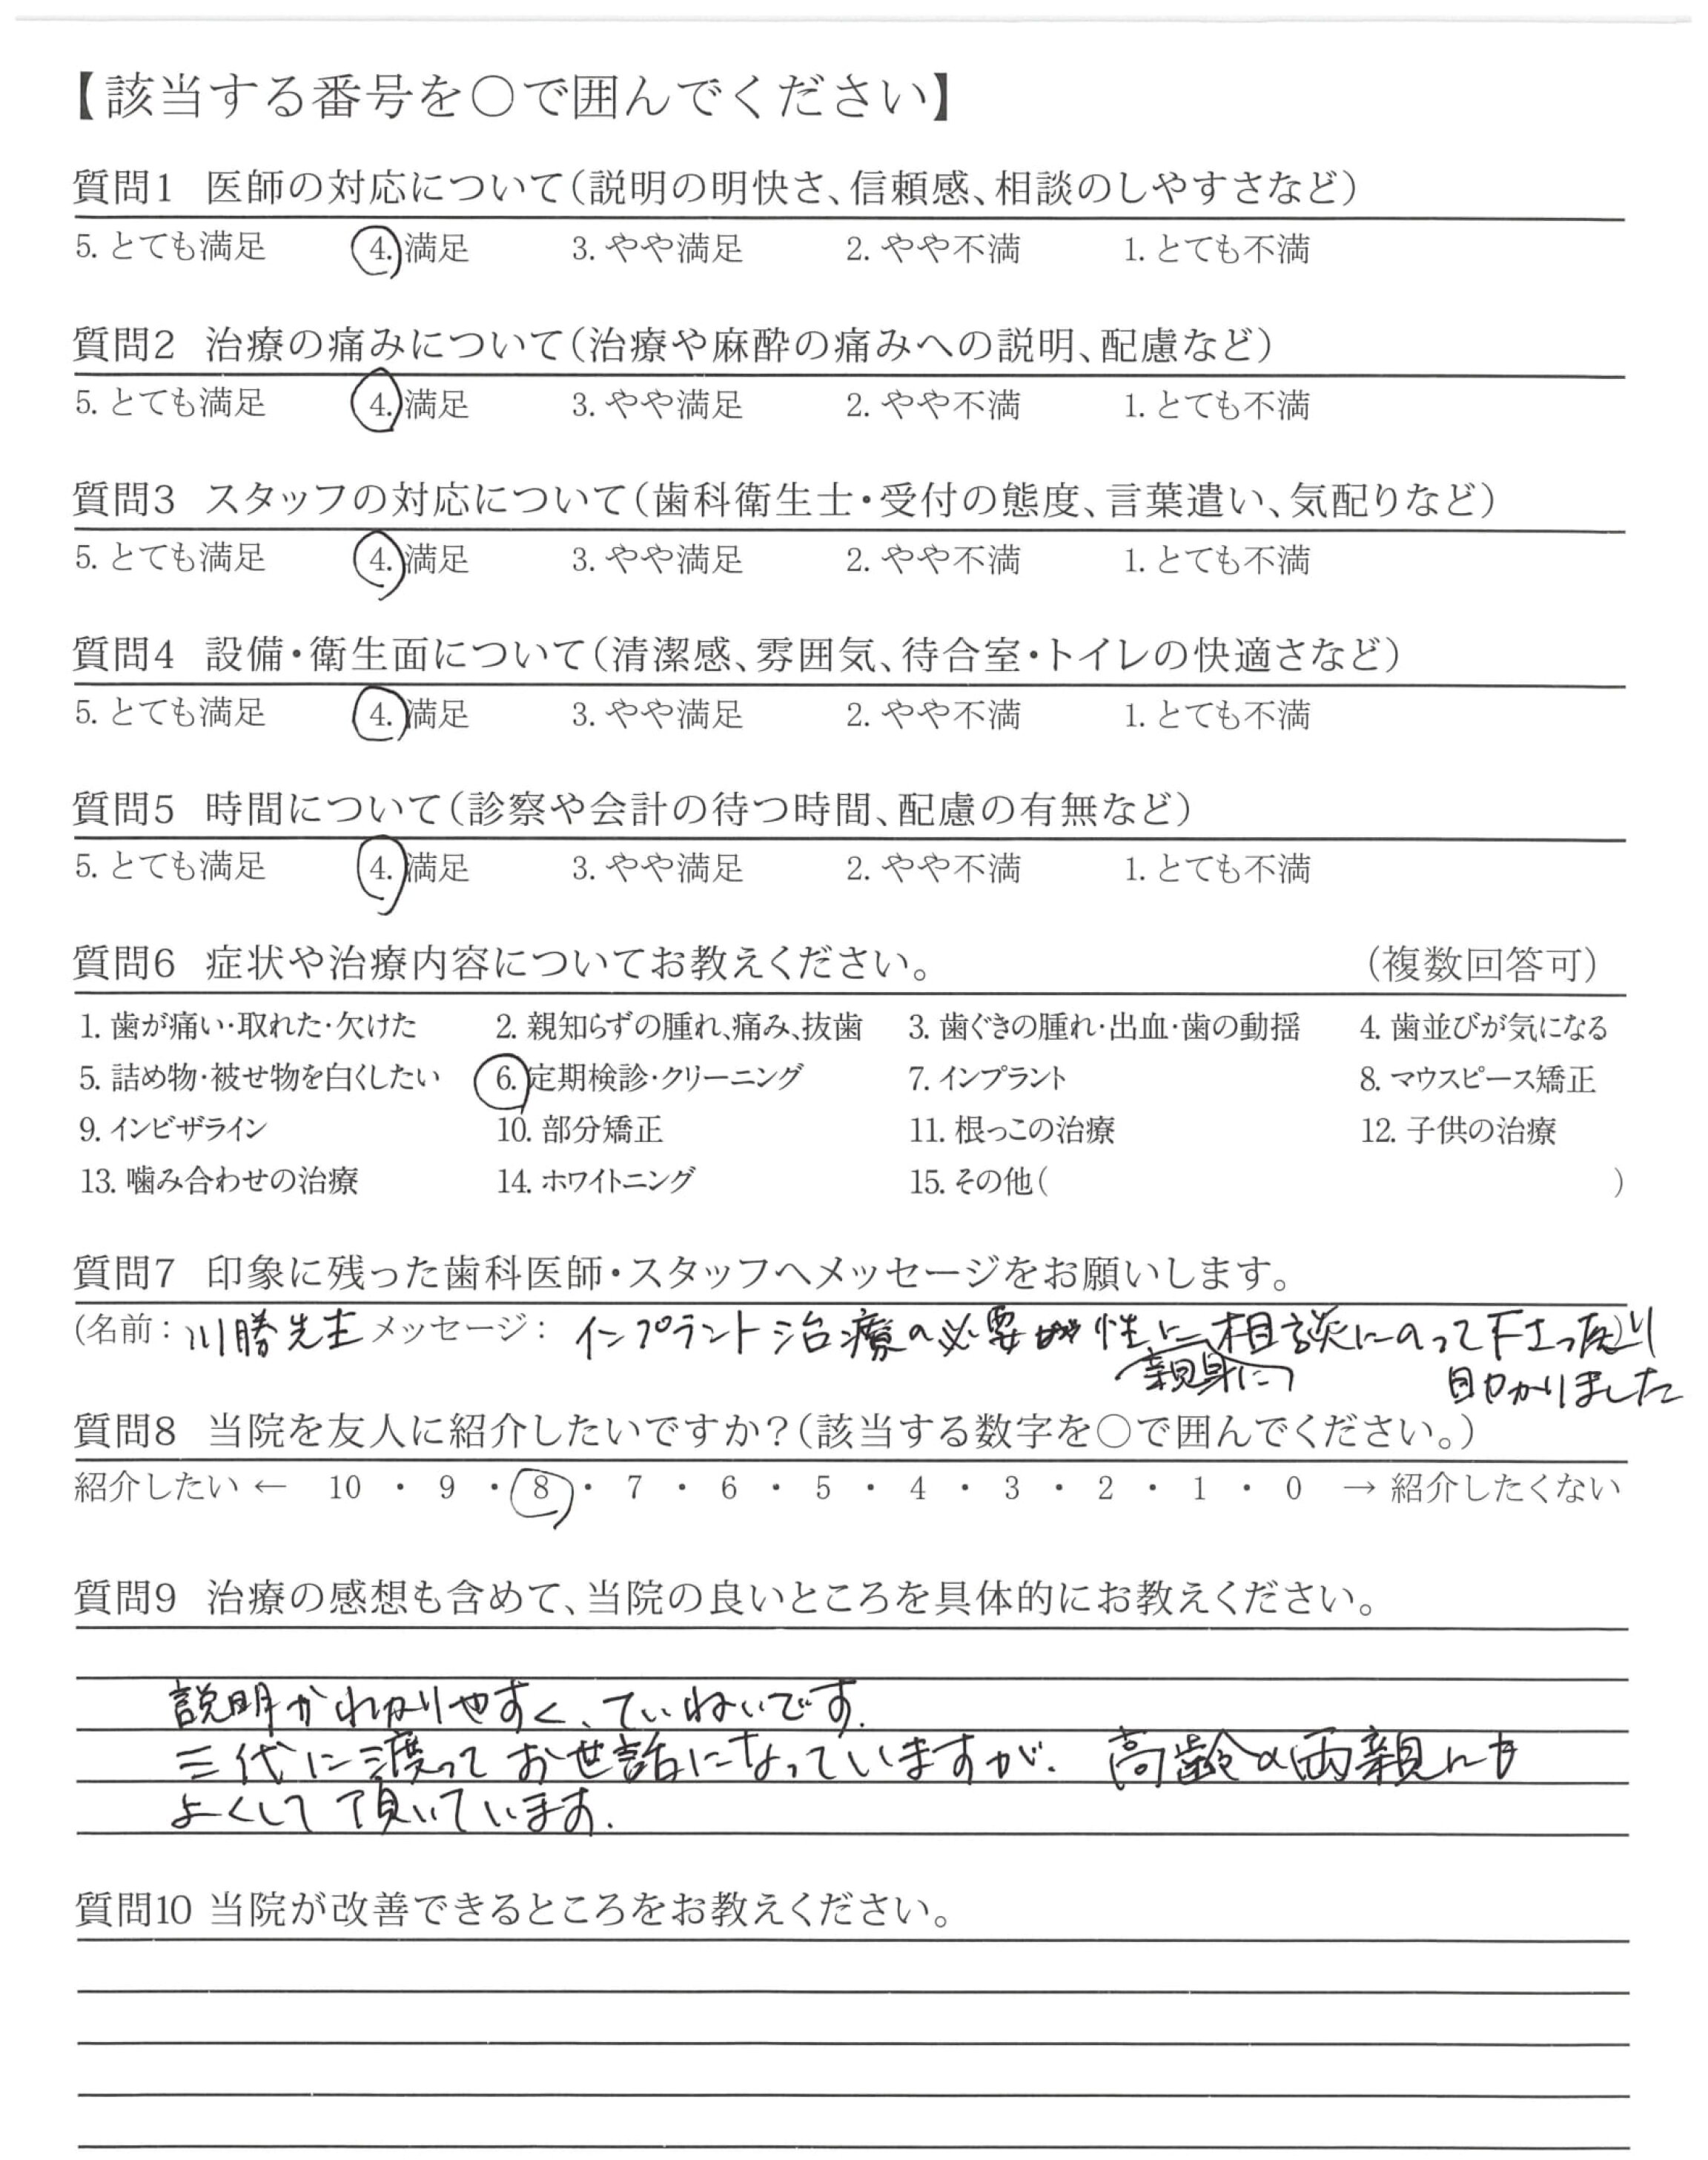 【該当する番号を○で囲んでください】
質問1 医師の対応について(説明の明快さ、信頼感、相談のしやすさなど)
5. とても満足 4. 満足 3. やや満足 2. やや不満 1. とても不満
質問2 治療の痛みについて(治療や麻酔の痛みへの説明、配慮など)
5. とても満足 4. 満足 3. やや満足 2. やや不満 1. とても不満
質問3 スタッフの対応について(歯科衛生士・受付の態度、言葉遣い、気配りなど)
5. とても満足 4. 満足 3. やや満足 2. やや不満 1. とても不満
質問4 設備・衛生面について(清潔感、雰囲気、待合室・トイレの快適さなど)
5. とても満足 4. 満足 3. やや満足 2. やや不満 1. とても不満
質問5 時間について(診察や会計の待つ時間、配慮の有無など)
5. とても満足 4. 満足 3. やや満足 2. やや不満 1. とても不満
質問6 症状や治療内容についてお教えください。 (複数回答可)
1. 歯が痛い・取れた・欠けた 2. 親知らずの腫れ、痛み、抜歯 3. 歯ぐきの腫れ・出血・歯の動揺 4. 歯並びが気になる
5. 詰め物・被せ物を白くしたい 6. 定期検診・クリーニング 7. インプラント 8. マウスピース矯正
9. インビザライン 10. 部分矯正 11. 根っこの治療 12. 子供の治療
13. 噛み合わせの治療 14. ホワイトニング 15. その他( )
質問7 印象に残った歯科医師・スタッフへメッセージをお願いします。
(名前: 川勝先生 メッセージ: インプラント治療の必要性に相談にのって下さり
親身に 助かりました
質問8 当院を友人に紹介したいですか?(該当する数字を○で囲んでください。)
紹介したい ← 10 ・ 9 ・ 8 ・ 7 ・ 6 ・ 5 ・ 4 ・ 3 ・ 2 ・ 1 ・ 0 → 紹介したくない
質問9 治療の感想も含めて、当院の良いところを具体的にお教えください。
説明がわかりやすく、ていねいです.
三代に渡ってお世話になっていますが. 高齢の両親にも
よくして頂いています.
質問10 当院が改善できるところをお教えください。